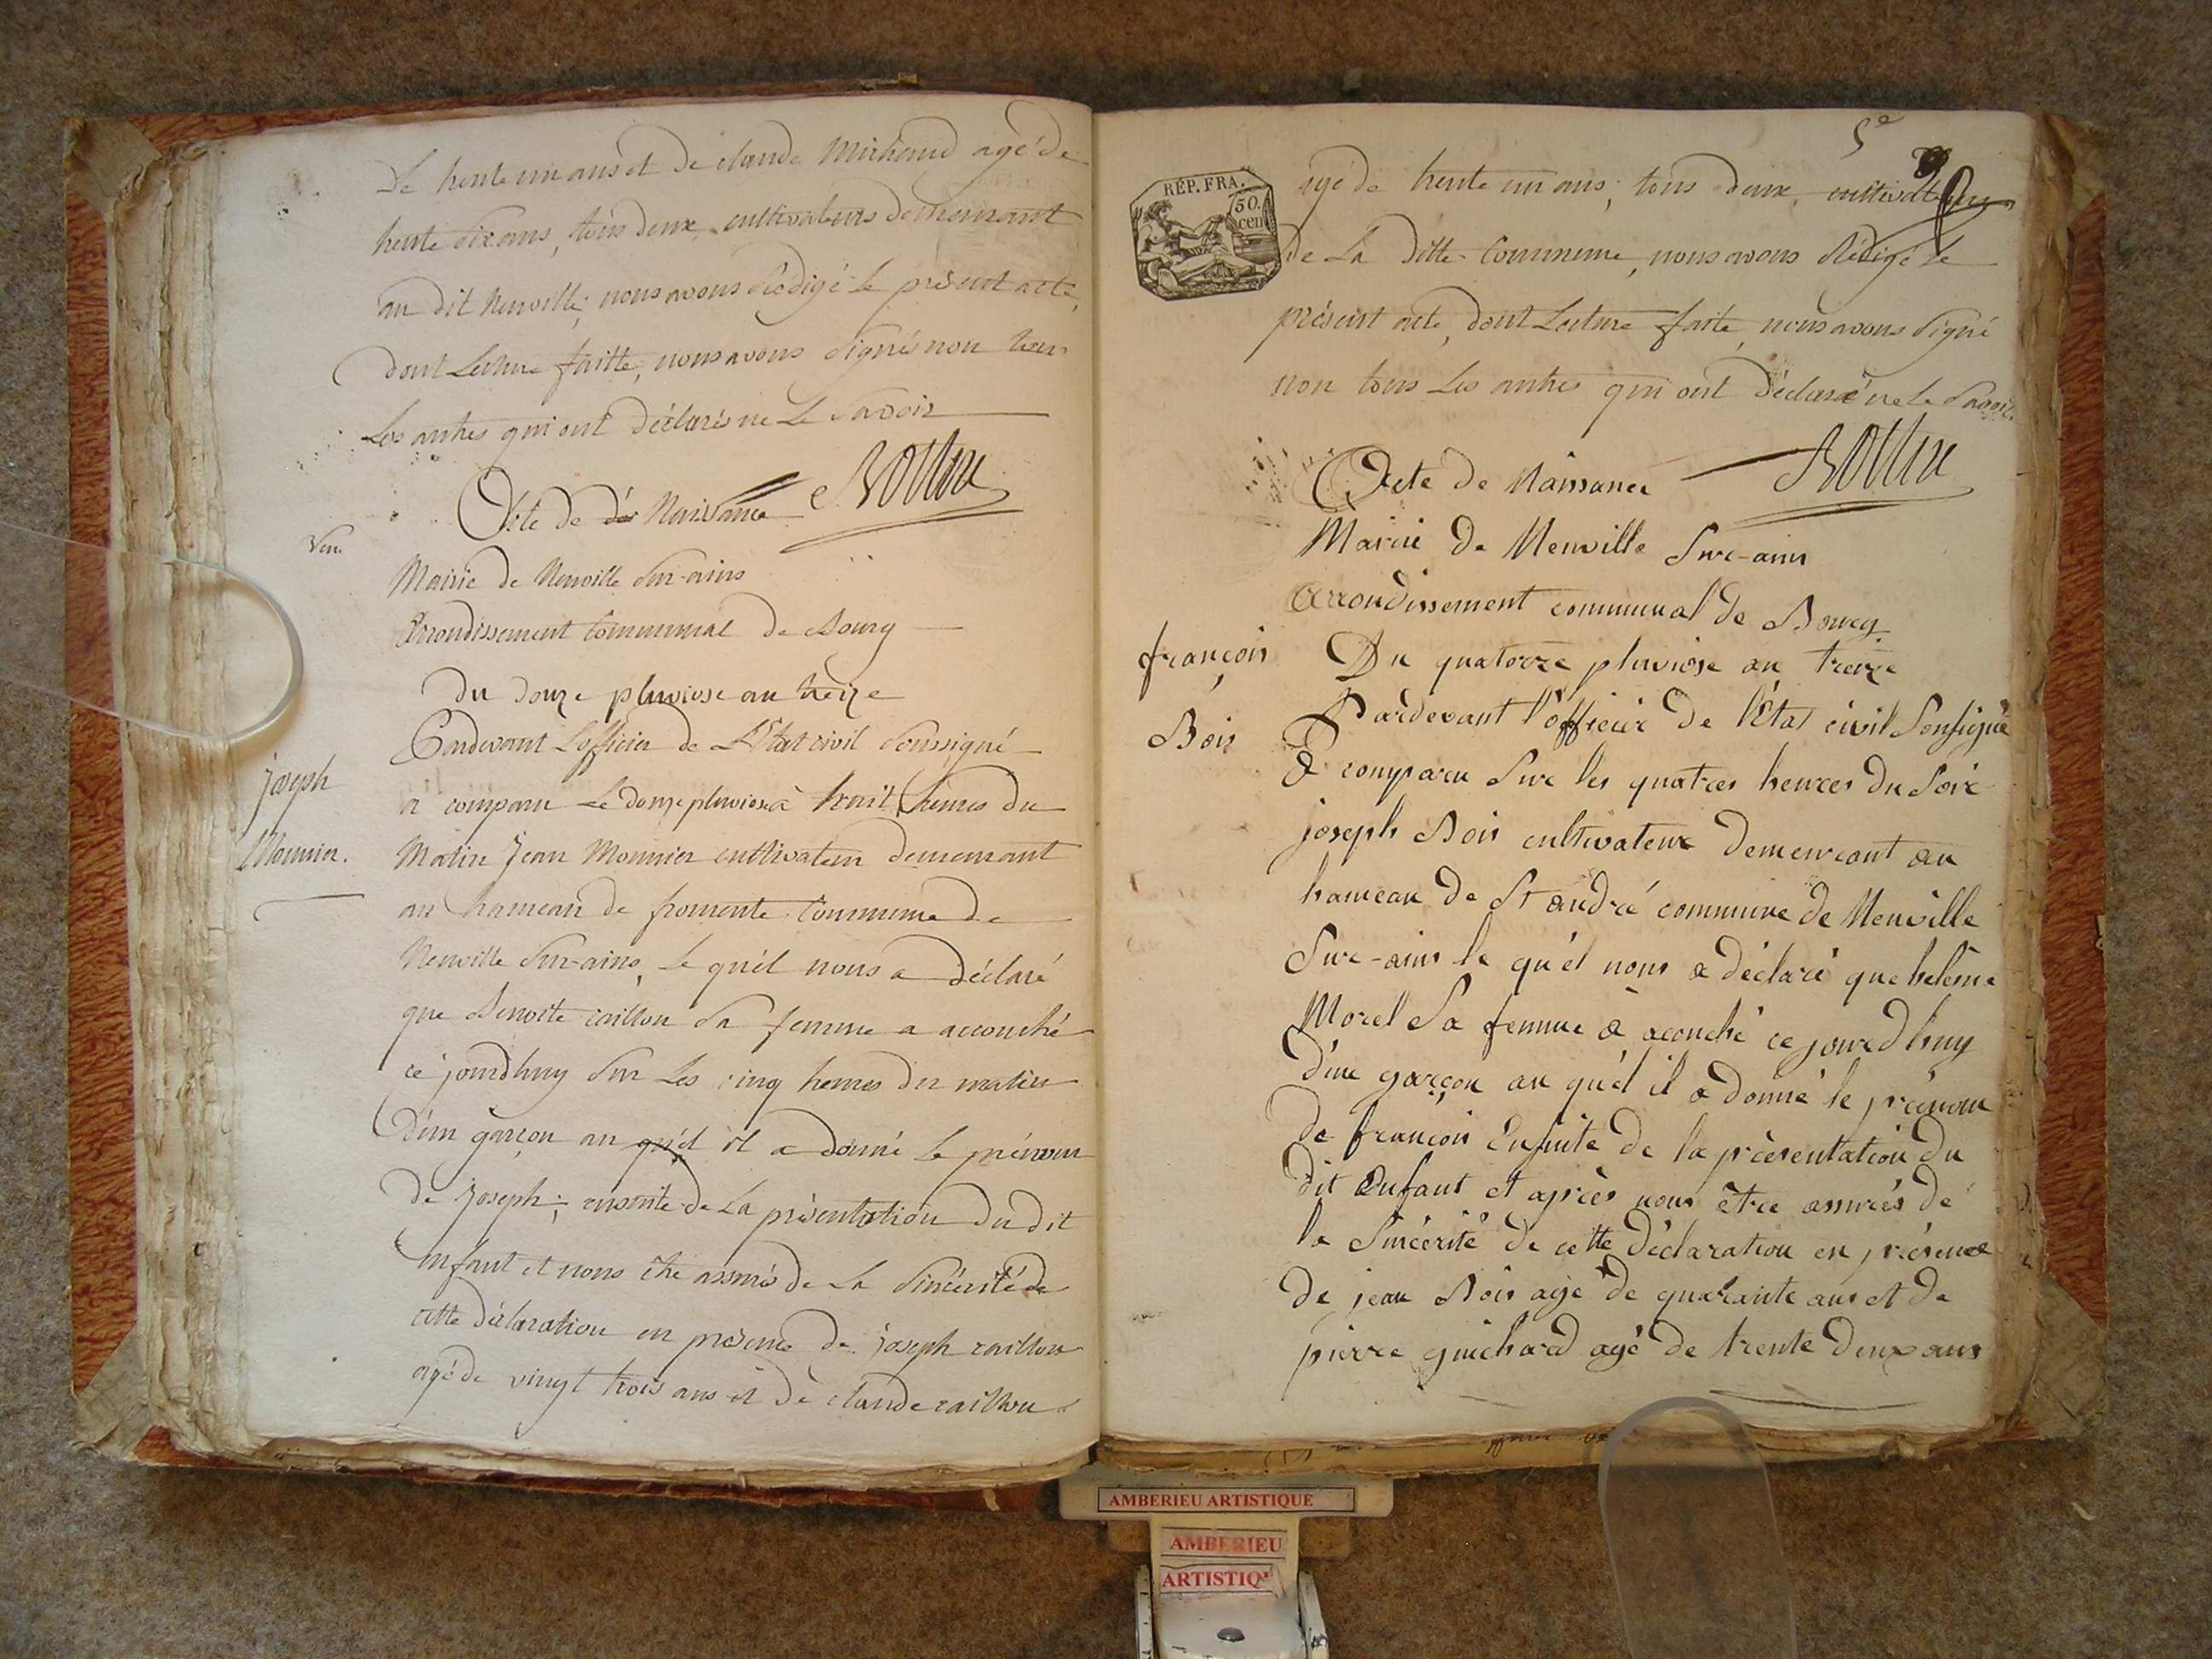 De trente un ans et de claude Michaud agé de
trente six ans, tous deux cultivateurs demeurant
au dit Neuville; nous avons rédigé le présent acte,
dont Lecture faitte, nous avons signés non tous
Les autres qui ont déclarés ne Le savoir
Acte de des Naissance
Vou.
Mairie de Neuville Sur-ains
Arrondissement Communal de Bourg
Du douze pluviose an treize
Pardevant L'officier de L'État civil soussigné
joseph
Monnier.
a comparu Le douze pluviose à huit heures du
Matin Jean Monnier cultivateur demeurant
au hameau de fromente Commune de
Neuville Sur-ains, le qu'él nous a déclaré
que Benoite caillon sa femme a accouché
ce jourdhuy sur Les cinq heures du matin
D'un garçon au qu'él il a donné Le prénom
De Joseph; ensuite de La présentation du dit
enfant et nous être assurés de La Sincérité de
cette déclaration en présence de joseph caillon
agé de vingt trois ans et de claude caillon
5e
RÉP. FRA.
50.
cen
agé de trente un ans; tous deux cultivateurs
de La ditte Commune, nous avons Rédigé le
présent acte, dont Lecture faite, nous avons signé
non tous Les autres qui ont déclaré ne le savoir
Acte de Naissance
Mairie de Neuville Sur-ains
Arrondissement communal de Bourg
françois
Bois
Du quatorze pluviose an treize
Pardevant l'officier de l'État civil Sousigné
A comparu Sur les quatres heures du Soir
joseph Bois cultivateur Demeurant au
hameau de St andré commune de Neuville
Sur-ains le qu'él nous a déclaré que heleine
Morel Sa femme a acouché ce jourd'huy
d'un garçon au qu'él il a donné le prénom
de françois Ensuite de la présentation du
dit Enfant et après nous être assurés de
la Sincérité de cette déclaration en présence
de jean Bois agé de quarante ans et de
pierre guichard agé de trente deux ans
AMBERIEU ARTISTIQUE
AMBERIEU
ARTISTIQ